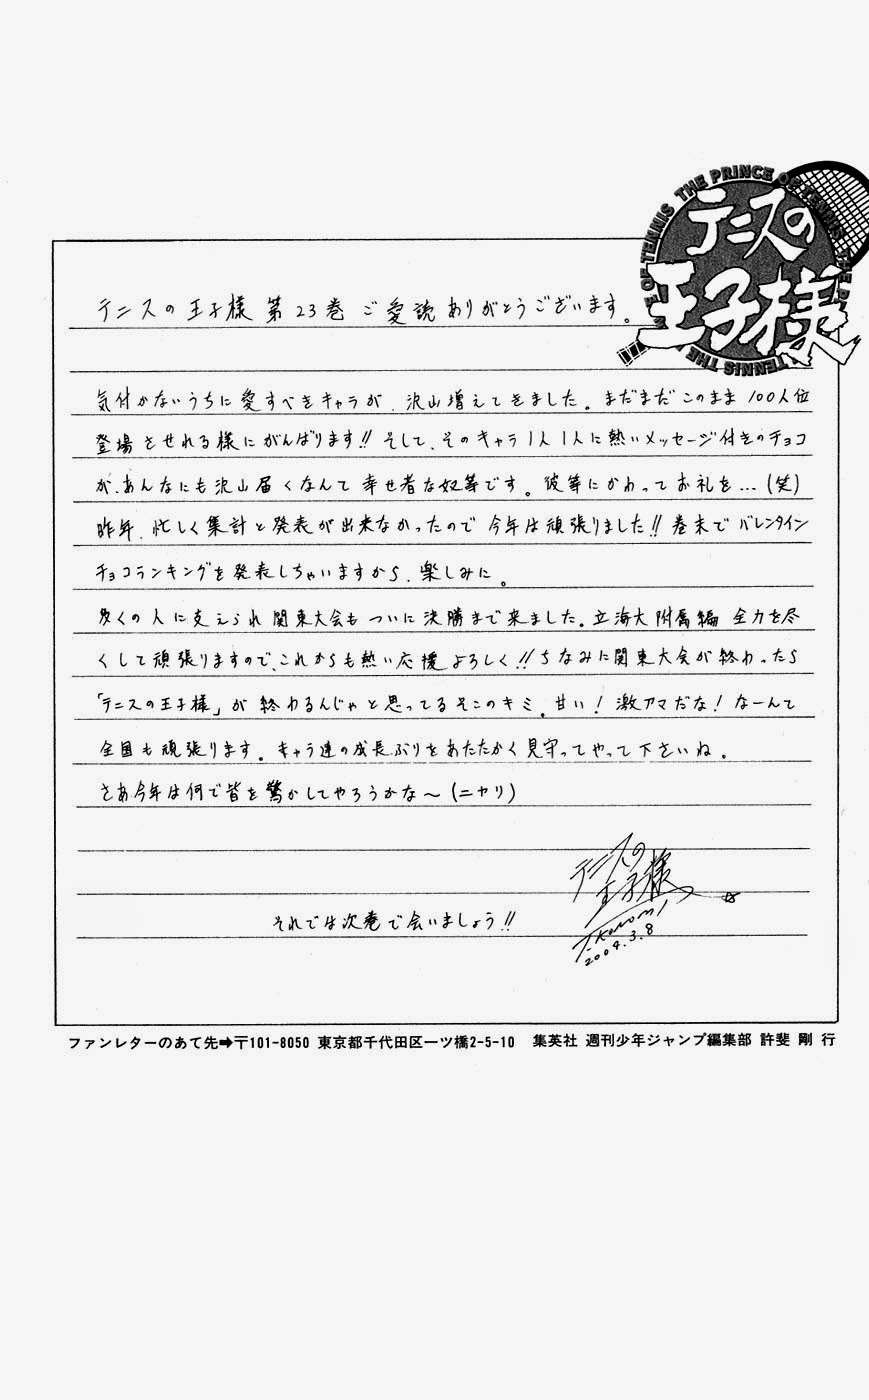 THE PRINCE OF TENNIS THE PRINCE OF TENNIS THE
テニスの
王子様
テニスの王子様 第23巻 ご愛読ありがとうございます。
気付かないうちに愛すべきキャラが、沢山増えてきました。まだまだこのまま100人位
登場させれる様にがんばります!! そして、そのキャラ1人1人に熱いメッセージ付きのチョコ
が、あんなにも沢山届くなんて幸せ者な奴等です。彼等にかわってお礼を…(笑)
昨年、忙しく集計と発表が出来なかったので今年は頑張りました!! 巻末でバレンタイン
チョコランキングを発表しちゃいますから、楽しみに。
多くの人に支えられ関東大会もついに決勝まで来ました。立海大附属編 全力を尽
くして頑張りますので、これからも熱い応援よろしく!! ちなみに関東大会が終わったら
「テニスの王子様」が終わるんじゃと思ってるそこのキミ。甘い! 激アマだな! なーんて
全国も頑張ります。キャラ達の成長ぶりをあたたかく見守ってやって下さいね。
さあ今年は何で皆を驚かしてやろうかな〜(ニヤリ)
テニスの
王子様
それでは次巻で会いましょう!!
T.Konomi
2004.3.8
ファンレターのあて先➡〒101-8050 東京都千代田区一ツ橋2-5-10 集英社 週刊少年ジャンプ編集部 許斐 剛 行